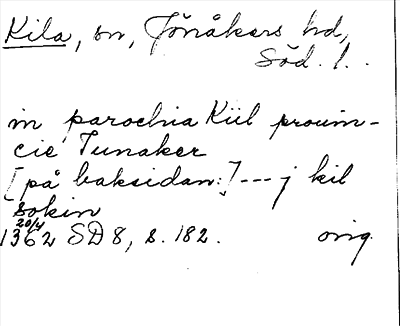 Kila, sn, Jönåkers hd,
Söd. l..
in parochia Kiil prouin-
cie Tunaker
[på baksidan:] --- j kil
sokin
20/4
1362 SD 8, s. 182. orig.